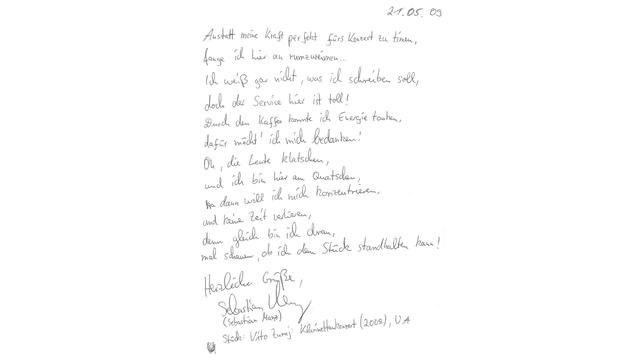 21.05.09
Anstatt meine Kraft perfekt fürs Konzert zu timen,
fange ich hier an rumzureimen...
Ich weiß gar nicht, was ich schreiben soll,
doch der Service hier ist toll!
Durch den Kaffee konnte ich Energie tanken,
dafür möcht' ich mich bedanken!
Oh, die Leute klatschen,
und ich bin hier am Quatschen,
dann will ich mich konzentrieren,
und keine Zeit verlieren,
denn gleich bin ich dran,
mal schauen, ob ich dem Stück standhalten kann!
Herzliche Grüße,
Sebastian
(Sebastian
Stück: Vito Žuraj: Klarinettenkonzert (2008), UA